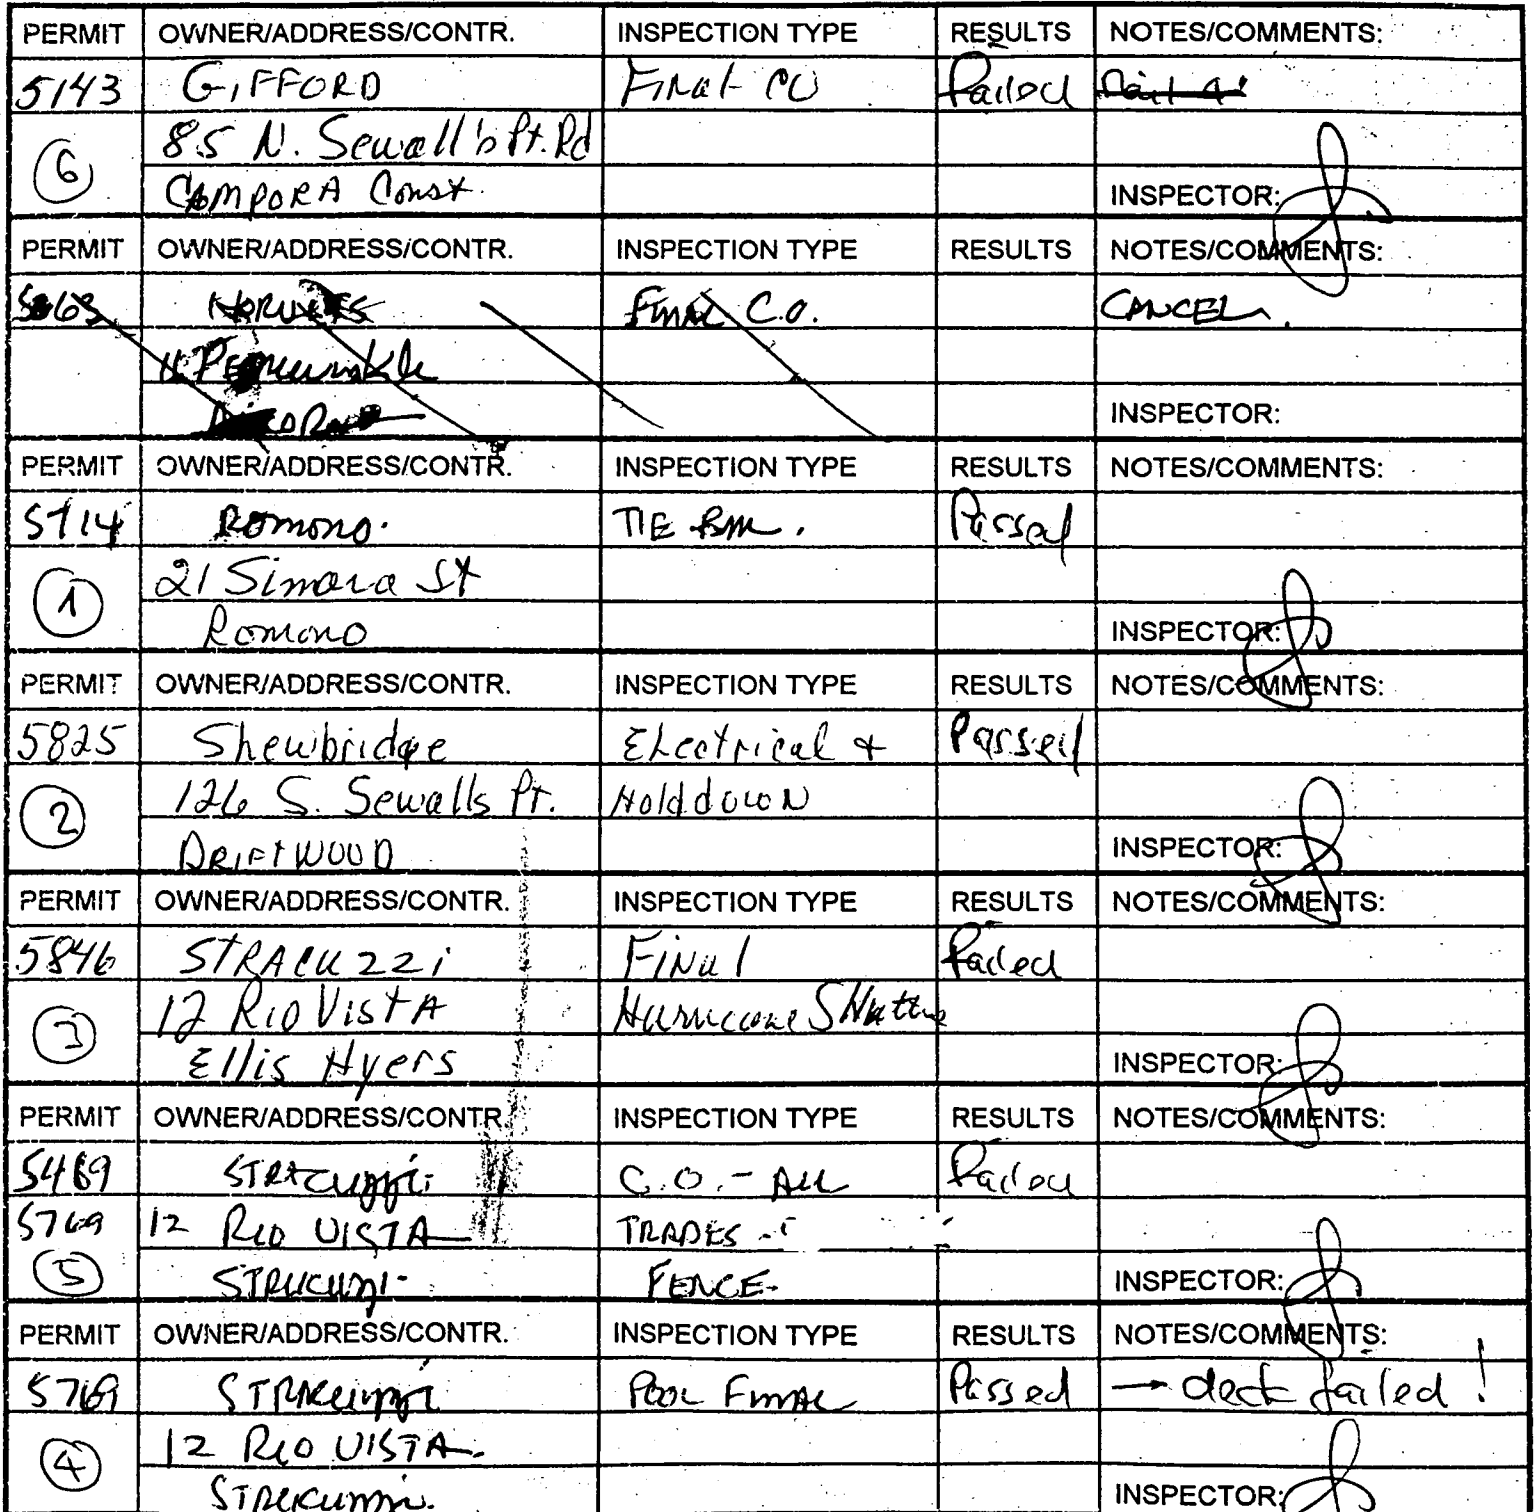 PERMIT OWNER/ADDRESS/CONTR. INSPECTION TYPE RESULTS NOTES/COMMENTS:
5143 GIFFORD Final CO Failed
85 N. Sewall's Pt. Rd
6
CAMPORA Const. INSPECTOR:
PERMIT OWNER/ADDRESS/CONTR. INSPECTION TYPE RESULTS NOTES/COMMENTS:
FINAL C.O. CANCEL.
11 Periwinkle
INSPECTOR:
PERMIT OWNER/ADDRESS/CONTR. INSPECTION TYPE RESULTS NOTES/COMMENTS:
5714 Romono. TIE BM. Passed
21 Simara St
1
Romono INSPECTOR:
PERMIT OWNER/ADDRESS/CONTR. INSPECTION TYPE RESULTS NOTES/COMMENTS:
5825 Shewbridge Electrical + Passed
126 S. Sewalls Pt. Holddown
2
DRIFTWOOD INSPECTOR:
PERMIT OWNER/ADDRESS/CONTR. INSPECTION TYPE RESULTS NOTES/COMMENTS:
5846 STRACUZZi Final Failed
12 Rio VISTA Hurricane Shutter
3
Ellis Hyers INSPECTOR:
PERMIT OWNER/ADDRESS/CONTR. INSPECTION TYPE RESULTS NOTES/COMMENTS:
5469 STRACUZZI C.O. - ALL Failed
5769 12 RIO VISTA TRADES -
5 STRACUZZI FENCE INSPECTOR:
PERMIT OWNER/ADDRESS/CONTR. INSPECTION TYPE RESULTS NOTES/COMMENTS:
5769 STRACUZZI POOL FINAL Passed → deck failed!
12 RIO VISTA.
4
STRACUZZI. INSPECTOR: